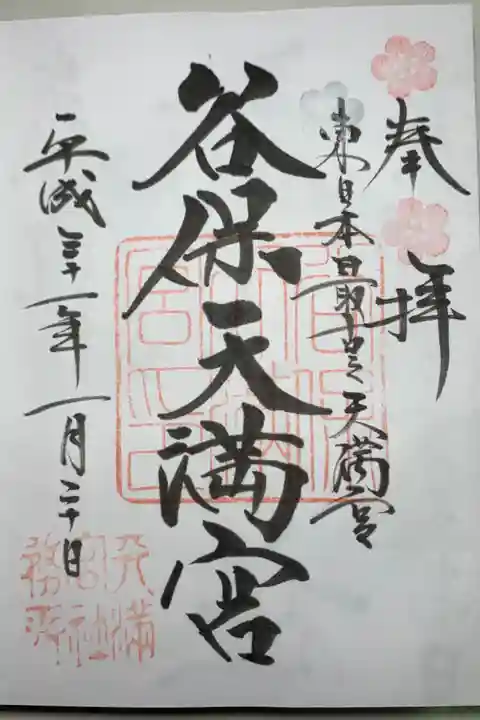 奉拝
東日本最古天満宮
谷保天満宮
平成三十一年一月二十日